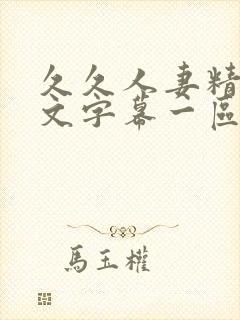 久久人妻精
文字幕一區
馬玉權